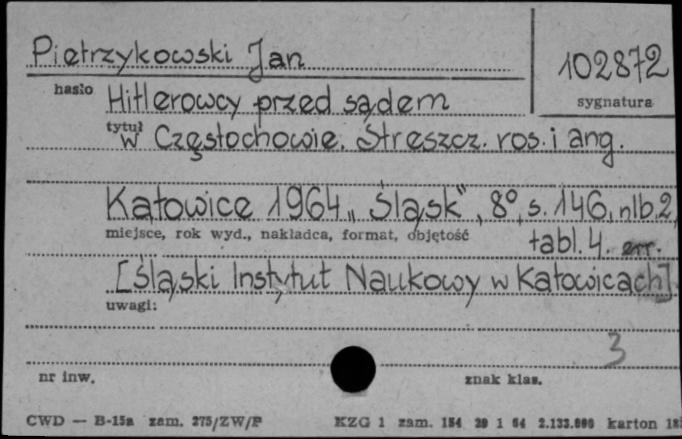 Pietrzykowski Jan
102872
hasło
sygnatura
Hitlerowcy przed sądem
tytuł
w Częstochowie. Streszcz. ros. i ang.
Katowice 1964 „Śląsk”, 8°, s. 146, nlb. 2,
miejsce, rok wyd., nakładca, format, objętość
tabl. 4. err.
[Śląski Instytut Naukowy w Katowicach]
uwagi:
3
nr inw.
znak klas.
CWD — B-15a zam. 275/ZW/P
KZG 1 zam. 154 29 1 64 2.133.000 karton